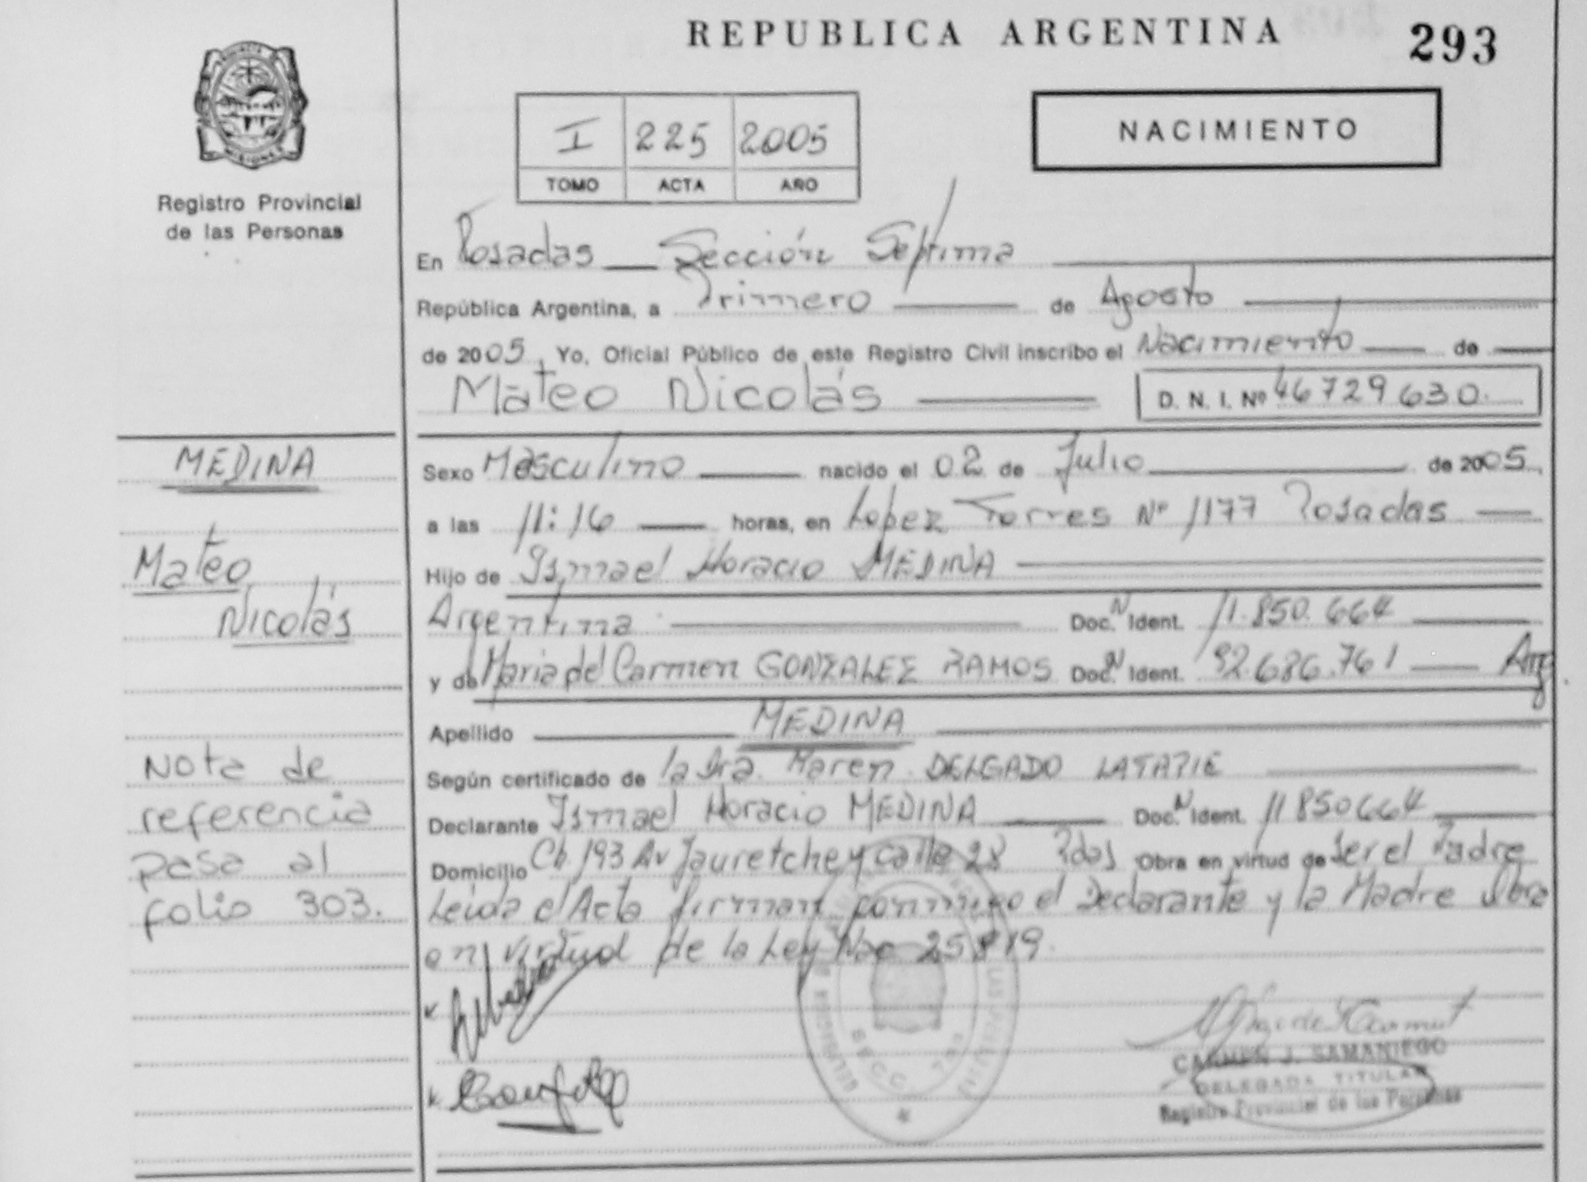 REPUBLICA ARGENTINA
293
MISIONES
Registro Provincial
de las Personas
I 225 2005
TOMO ACTA AÑO
NACIMIENTO
En Posadas Sección Séptima
República Argentina, a Primero de Agosto
de 2005, Yo, Oficial Público de este Registro Civil inscribo el Nacimiento de
Mateo Nicolás D. N. I. Nº 46729630.
MEDINA
Mateo
Nicolás
Nota de
referencia
pasa al
folio 303.
Sexo Masculino nacido el 02 de Julio de 2005,
a las 11:16 horas, en Lopez Torres Nº 1177 Posadas
Hijo de Ismael Horacio MEDINA
Argentina Doc. N Ident. 11.850.664
y de Maria del Carmen GONZALEZ RAMOS Doc. N Ident. 92.686.761 Arg
Apellido MEDINA
Según certificado de la Dra. Karen DELGADO LATAPIE
Declarante Ismael Horacio MEDINA Doc. N Ident. 11850664
Domicilio Ch 193 Av Jauretche y calle 28 Pdas Obra en virtud de Ser el Padre
Leida el Acta firman conmigo el Declarante y la Madre Obra
en virtud de la Ley Nro 25819.
SECC. 7ma
CARMEN J. SAMANIEGO
DELEGADA TITULAR
Registro Provincial de las Personas